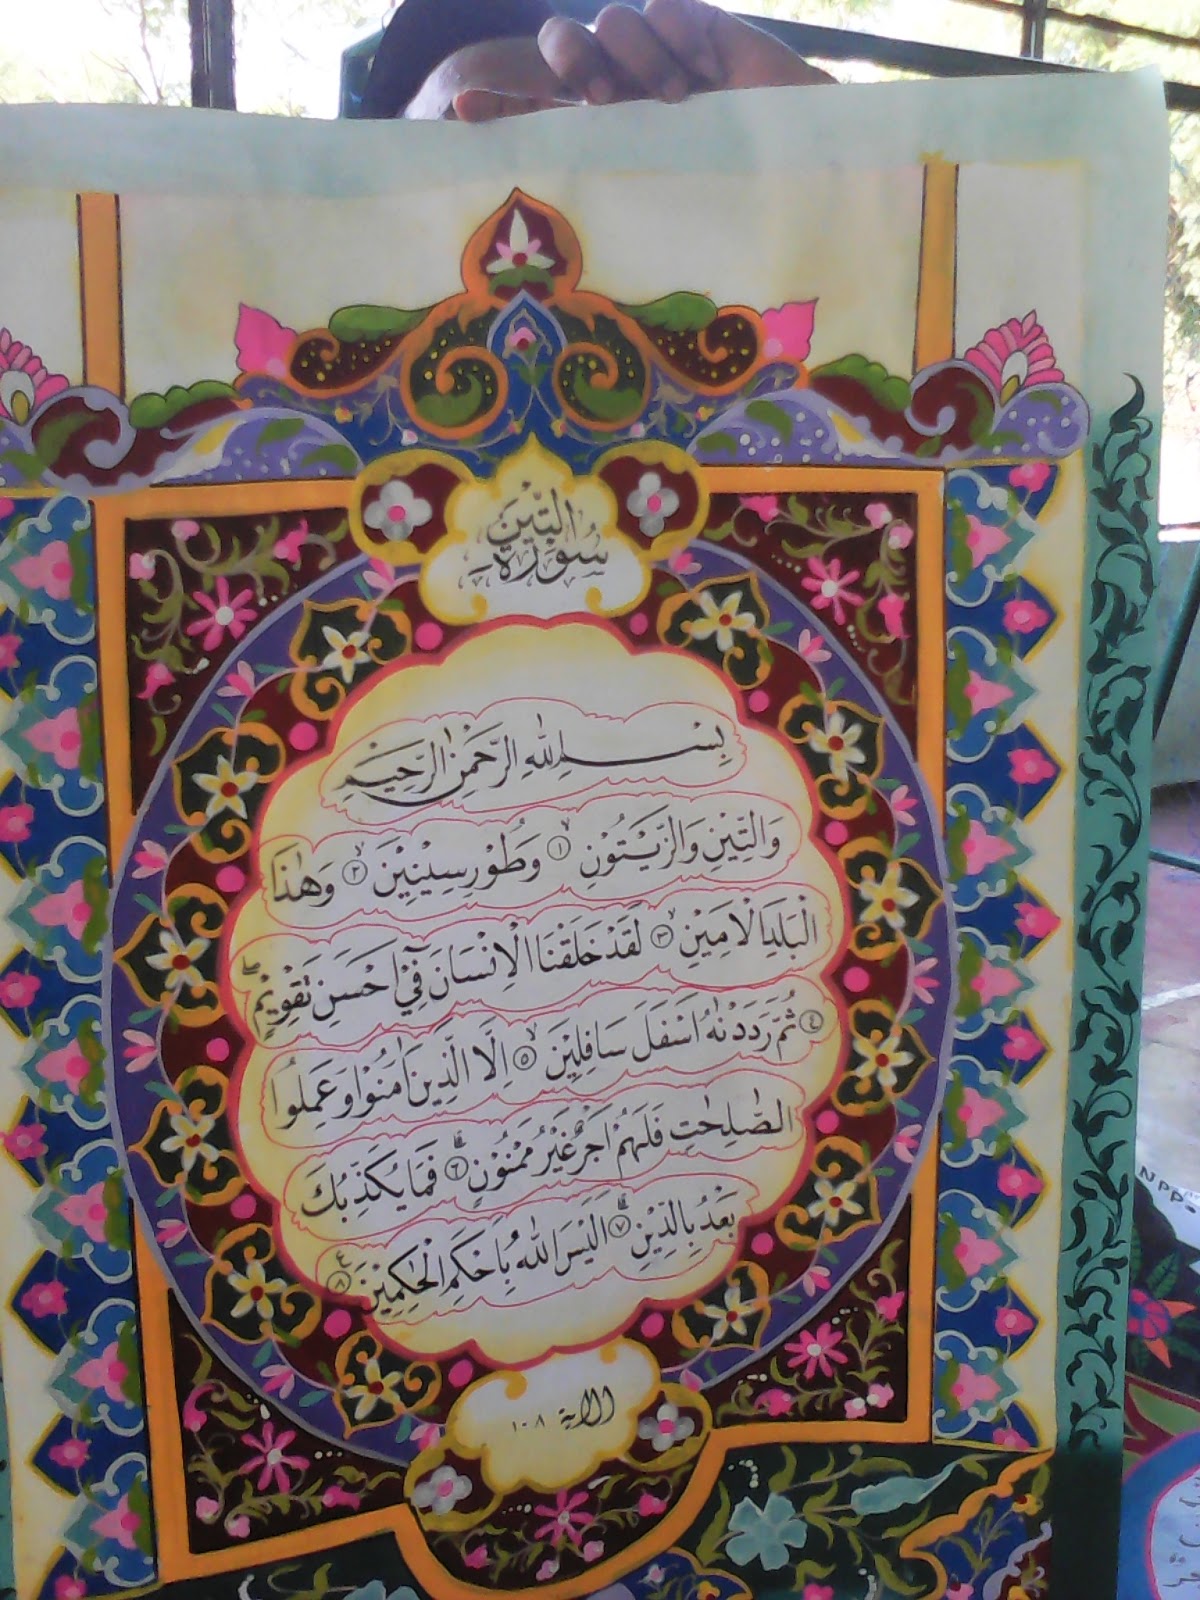 سُورَةُ
التِّيْنِ
بِسْمِ اللّٰهِ الرَّحْمٰنِ الرَّحِيْمِ
وَالتِّيْنِ وَالزَّيْتُوْنِ ۙ ١ وَطُوْرِ سِيْنِيْنَ ۙ ٢ وَهٰذَا
الْبَلَدِ الْاَمِيْنِ ۙ ٣ لَقَدْ خَلَقْنَا الْاِنْسَانَ فِيْٓ اَحْسَنِ تَقْوِيْمٍ ۖ
٤ ثُمَّ رَدَدْنٰهُ اَسْفَلَ سَافِلِيْنَ ۙ ٥ اِلَّا الَّذِيْنَ اٰمَنُوْا وَعَمِلُوا
الصّٰلِحٰتِ فَلَهُمْ اَجْرٌ غَيْرُ مَمْنُوْنٍ ۗ ٦ فَمَا يُكَذِّبُكَ
بَعْدُ بِالدِّيْنِ ۗ ٧ اَلَيْسَ اللّٰهُ بِاَحْكَمِ الْحٰكِمِيْنَ ٨ ع
الاية ١٠٨
NPP